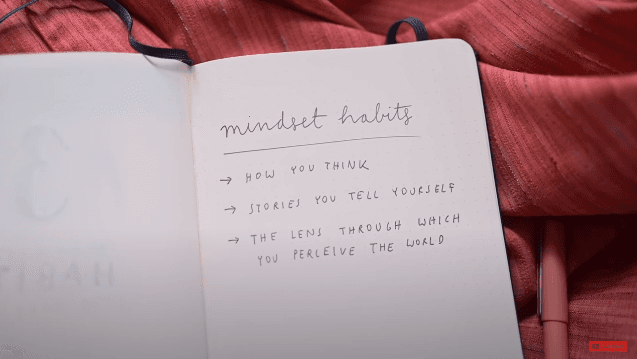 mindset habits
→ HOW YOU THINK
→ STORIES YOU TELL YOURSELF
→ THE LENS THROUGH WHICH
YOU PERCEIVE THE WORLD
3
HABIT